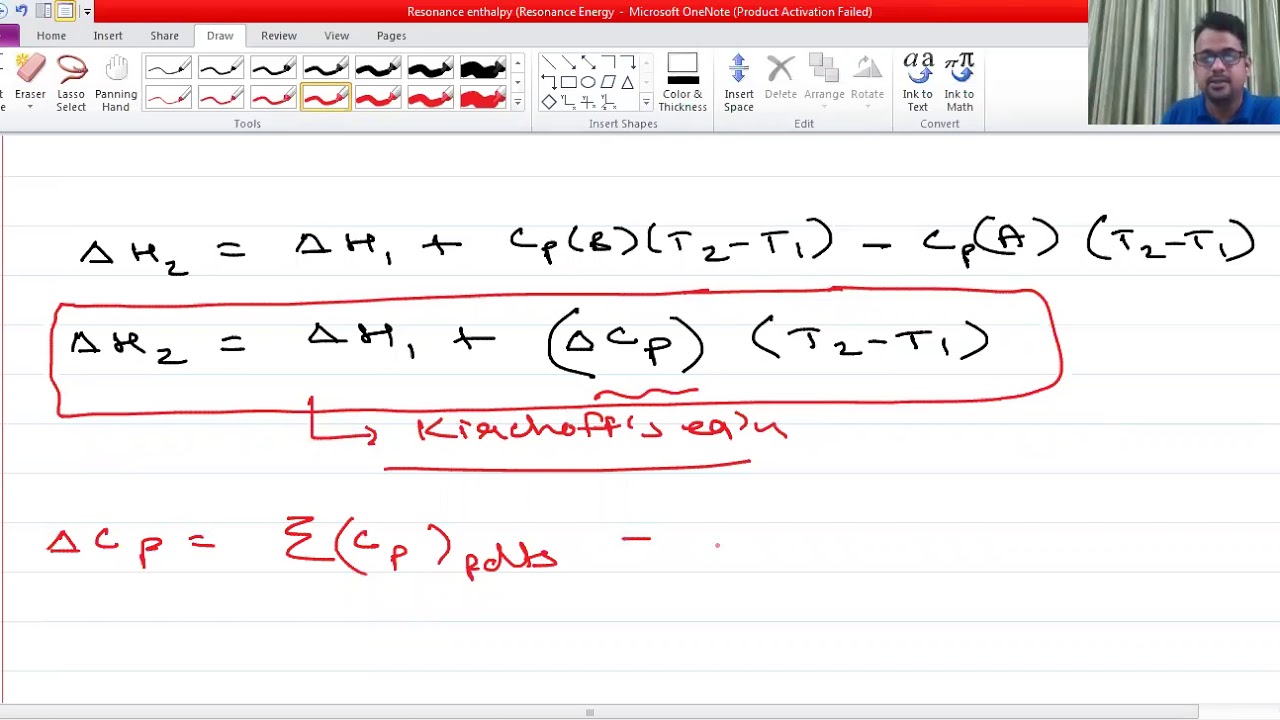 Resonance enthalpy (Resonance Energy - Microsoft OneNote (Product Activation Failed)
Home Insert Share Draw Review View Pages
Eraser Lasso Select Panning Hand
Color & Thickness
Insert Space Delete Arrange Rotate
Ink to Text Ink to Math
Tools Insert Shapes Edit Convert
ΔH₂ = ΔH₁ + Cp(B)(T₂-T₁) - Cp(A) (T₂-T₁)
ΔH₂ = ΔH₁ + (ΔCp) (T₂-T₁)
Kirchoff's eq'n
ΔCp = Σ(Cp)pdts -